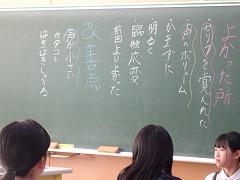 よかった所
・セリフを覚えれた
・声のボリューム
・かまずに
・明るく
・臨機応変
・前回よりよかった
改善点
・声が小さい
カタコト
はきはきしゃべる